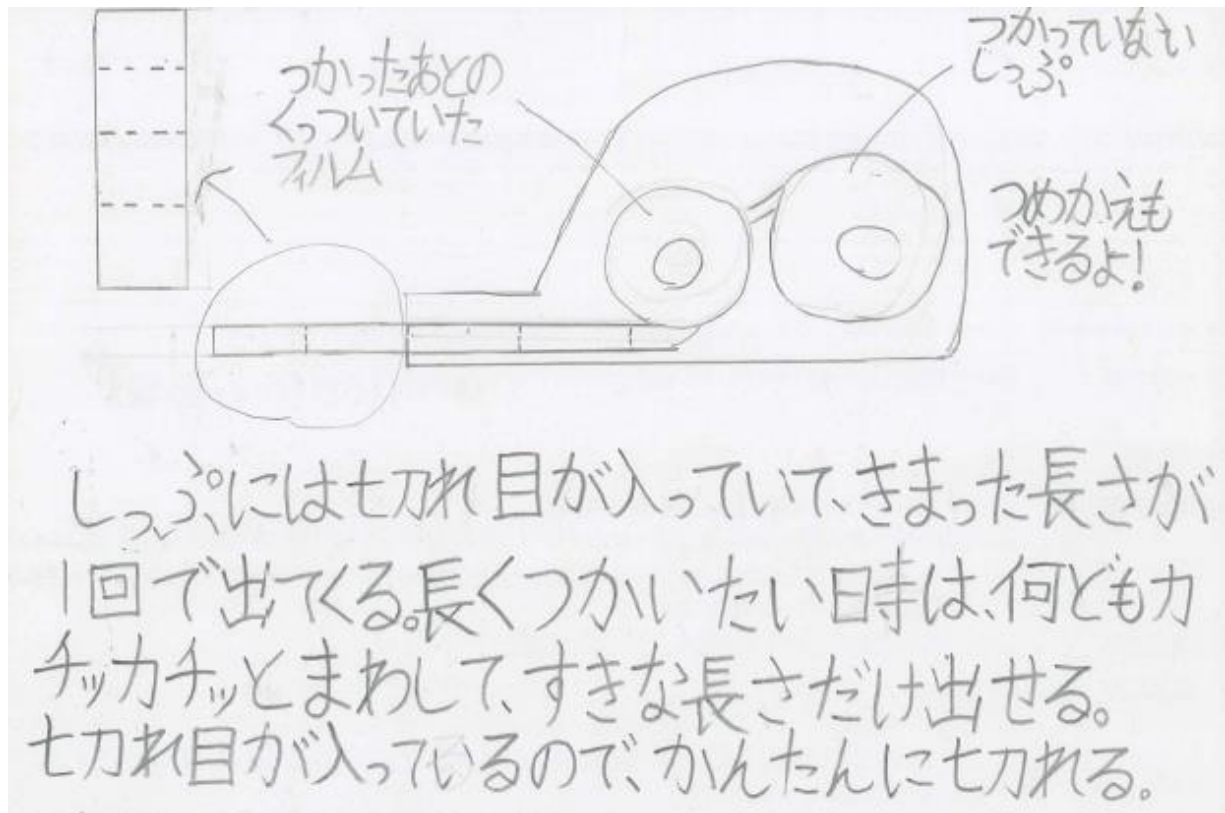 つかったあとの
くっついていた
フィルム
つかっていない
しっぷ
つめかえも
できるよ!
しっぷには切れ目が入っていて、きまった長さが
1回で出てくる。長くつかいたい時は、何どもカ
チッカチッとまわして、すきな長さだけ出せる。
切れ目が入っているので、かんたんに切れる。